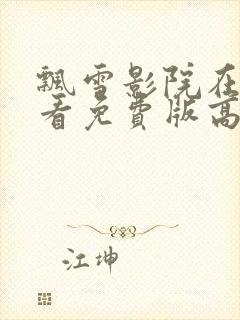 飘雪影院在
看免费版高
江坤